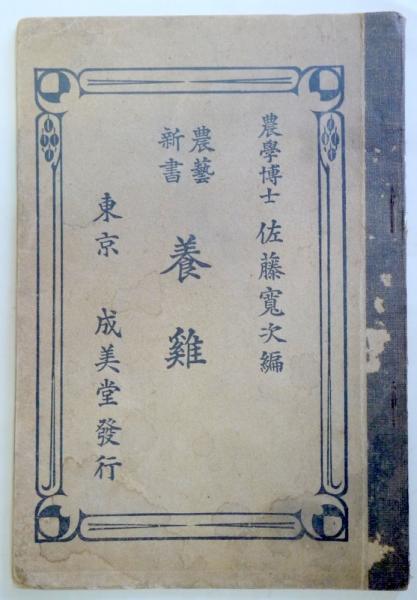 農學博士 佐藤寬次編
農藝
新書
養雞
東京 成美堂發行